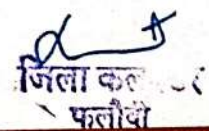 जिला कल
फलौदी